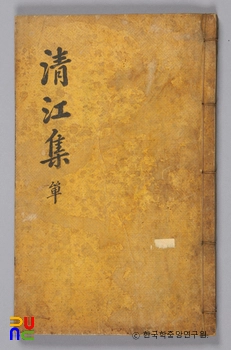 清江集
單
© 한국학중앙연구원